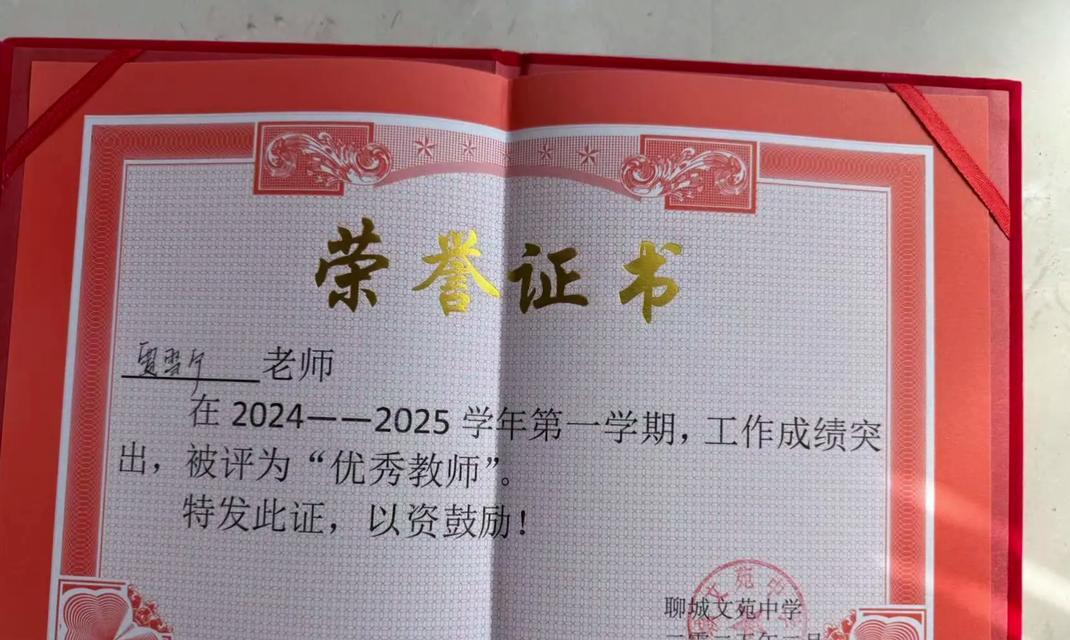 荣誉证书
老师
在 2024——2025 学年第一学期，工作成绩突
出，被评为“优秀教师”。
特发此证，以资鼓励！
文苑中
聊城文苑中学